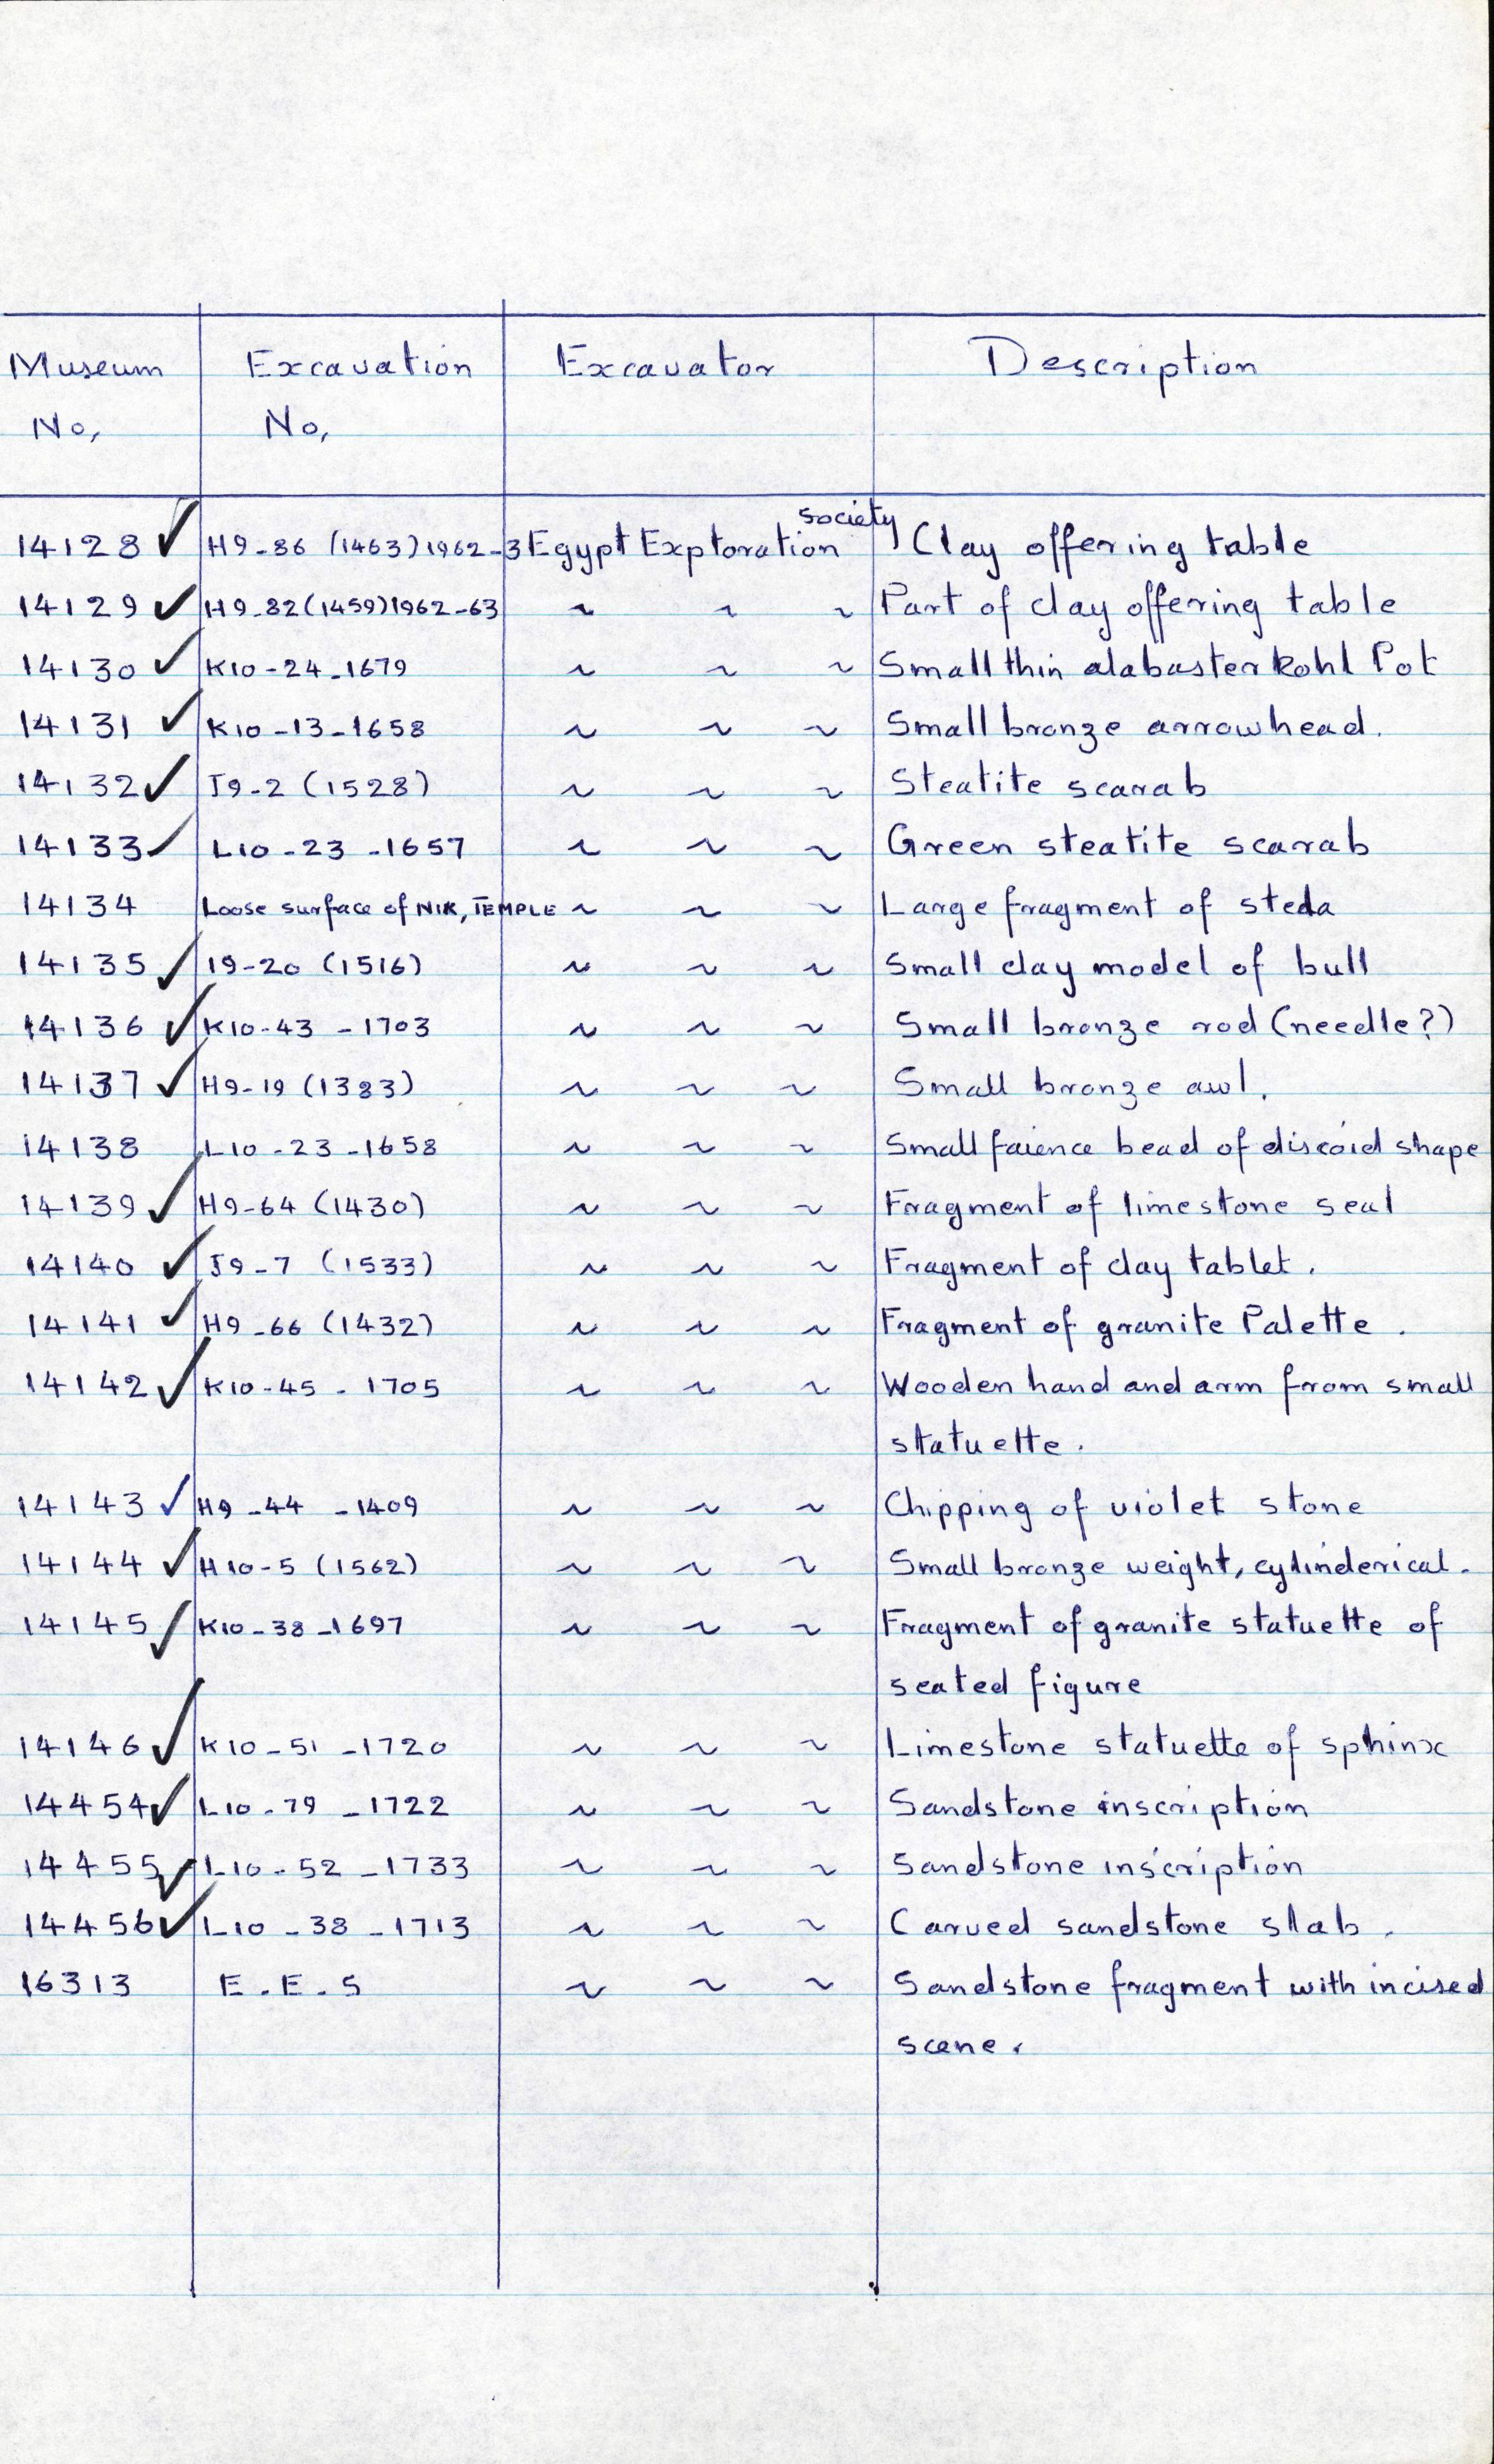 Museum No, Excavation No, Excavator Description
14128 ✓ H9-86 (1463) 1962-3 Egypt Exploration society Clay offering table
14129 ✓ H9-82 (1459) 1962-63 ~ ~ ~ Part of clay offering table
14130 ✓ K10-24-1679 ~ ~ ~ Small thin alabaster kohl Pot
14131 ✓ K10-13-1658 ~ ~ ~ Small bronze arrowhead.
14132 ✓ J9-2 (1528) ~ ~ ~ Steatite scarab
14133 ✓ L10-23-1657 ~ ~ ~ Green steatite scarab
14134 Loose surface of TEMPLE ~ ~ ~ Large fragment of steda
14135 ✓ 19-20 (1516) ~ ~ ~ Small clay model of bull
14136 ✓ K10-43-1703 ~ ~ ~ Small bronze rod (needle?)
14137 ✓ H9-19 (1383) ~ ~ ~ Small bronze awl.
14138 L10-23-1658 ~ ~ ~ Small faience bead of discoid shape
14139 ✓ H9-64 (1430) ~ ~ ~ Fragment of limestone seal
14140 ✓ J9-7 (1533) ~ ~ ~ Fragment of clay tablet.
14141 ✓ H9-66 (1432) ~ ~ ~ Fragment of granite Palette.
14142 ✓ K10-45-1705 ~ ~ ~ Wooden hand and arm from small
statuette.
14143 ✓ H9-44-1409 ~ ~ ~ Chipping of violet stone
14144 ✓ H10-5 (1562) ~ ~ ~ Small bronze weight, cylinderical.
14145 ✓ K10-38-1697 ~ ~ ~ Fragment of granite statuette of
seated figure
14146 ✓ K10-51-1720 ~ ~ ~ Limestone statuette of sphinx
14454 ✓ L10-79-1722 ~ ~ ~ Sandstone inscription
14455 ✓ L10-52-1733 ~ ~ ~ Sandstone inscription
14456 ✓ L10-38-1713 ~ ~ ~ Carved sandstone slab.
16313 E.E.S ~ ~ ~ Sandstone fragment with incised
scene.